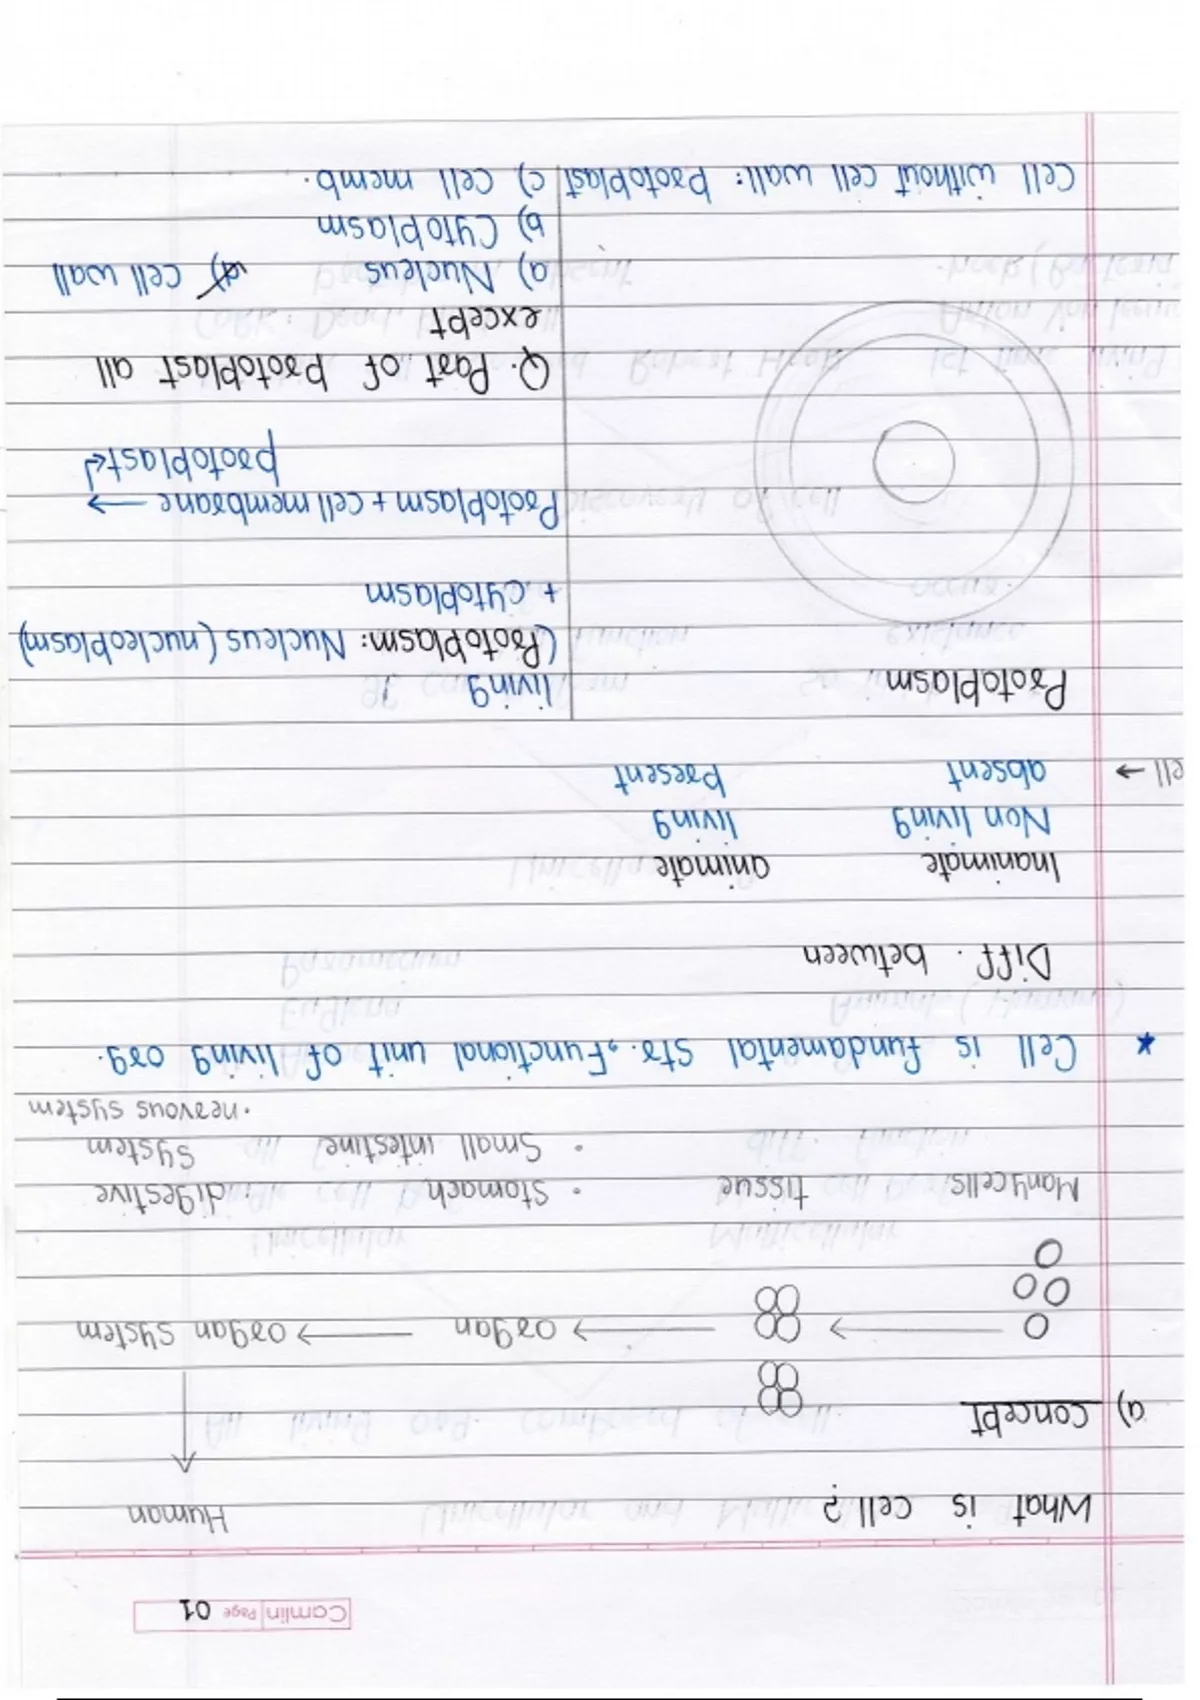 Camlin Page 01
What is cell? Human
a) Concept
→ → organ → organ system
Manycells tissue • Stomach • digestive
• Small intestine system
• nervous system
★ Cell is fundamental str., Functional unit of living org.
Diff. between
Inanimate animate
Non living living
ell → absent Present
Protoplasm living
(Protoplasm: Nucleus (nucleoplasm)
+ Cytoplasm
Protoplasm + cell membrane →
protoplast ↲
Q. Part of protoplast all
except
a) Nucleus d) Cell wall
b) Cytoplasm
Cell without cell wall: Protoplast c) Cell memb.